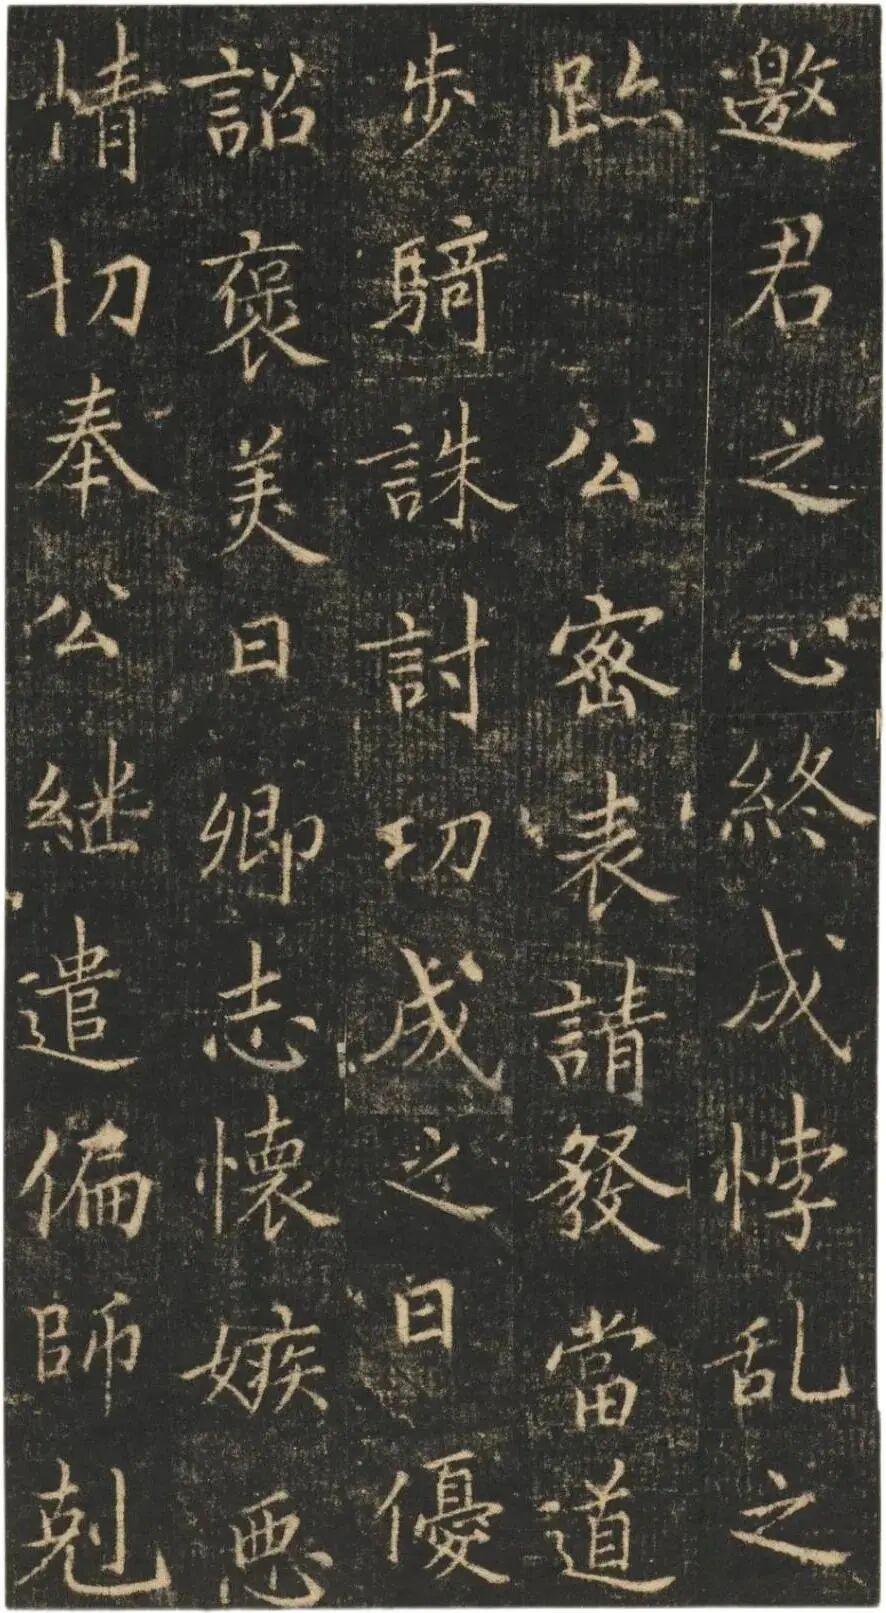 邀君之心終成悖乱之
跡公密表請發當道
步騎誅討功成之日優
詔褒美曰卿志懷嫉悪
情切奉公継遣偏師剋